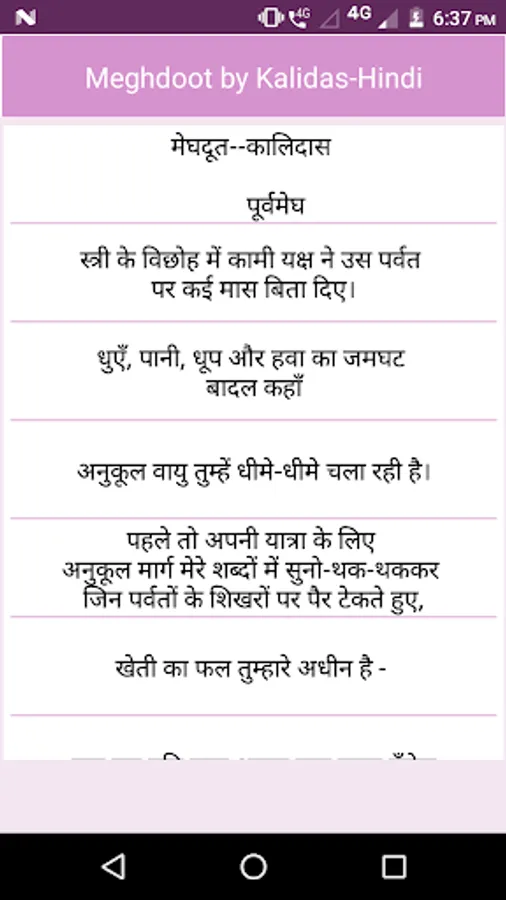 4G 4G 6:37 PM
Meghdoot by Kalidas-Hindi
मेघदूत--कालिदास
पूर्वमेघ
स्त्री के विछोह में कामी यक्ष ने उस पर्वत
पर कई मास बिता दिए।
धुएँ, पानी, धूप और हवा का जमघट
बादल कहाँ
अनुकूल वायु तुम्हें धीमे-धीमे चला रही है।
पहले तो अपनी यात्रा के लिए
अनुकूल मार्ग मेरे शब्दों में सुनो-थक-थककर
जिन पर्वतों के शिखरों पर पैर टेकते हुए,
खेती का फल तुम्हारे अधीन है -